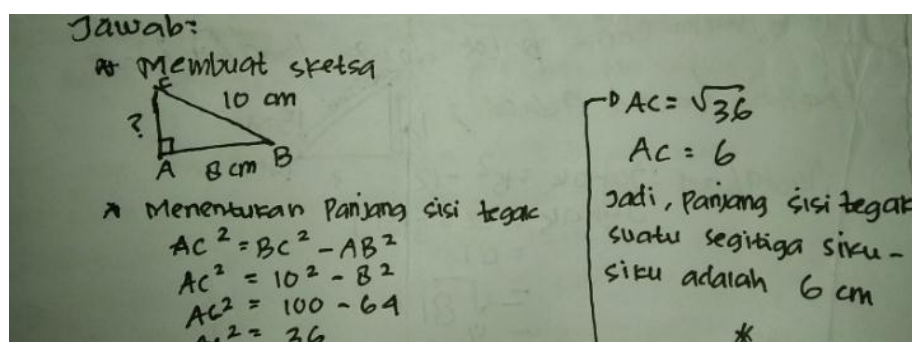 Jawab:
* Membuat sketsa
C
10 cm
?
A
8 cm
B
* Menentukan Panjang sisi tegak
AC² = BC² - AB²
AC² = 10² - 8²
AC² = 100 - 64
AC² = 36
AC = √36
AC = 6
Jadi, Panjang sisi tegak
suatu segitiga siku-
siku adalah 6 cm
*